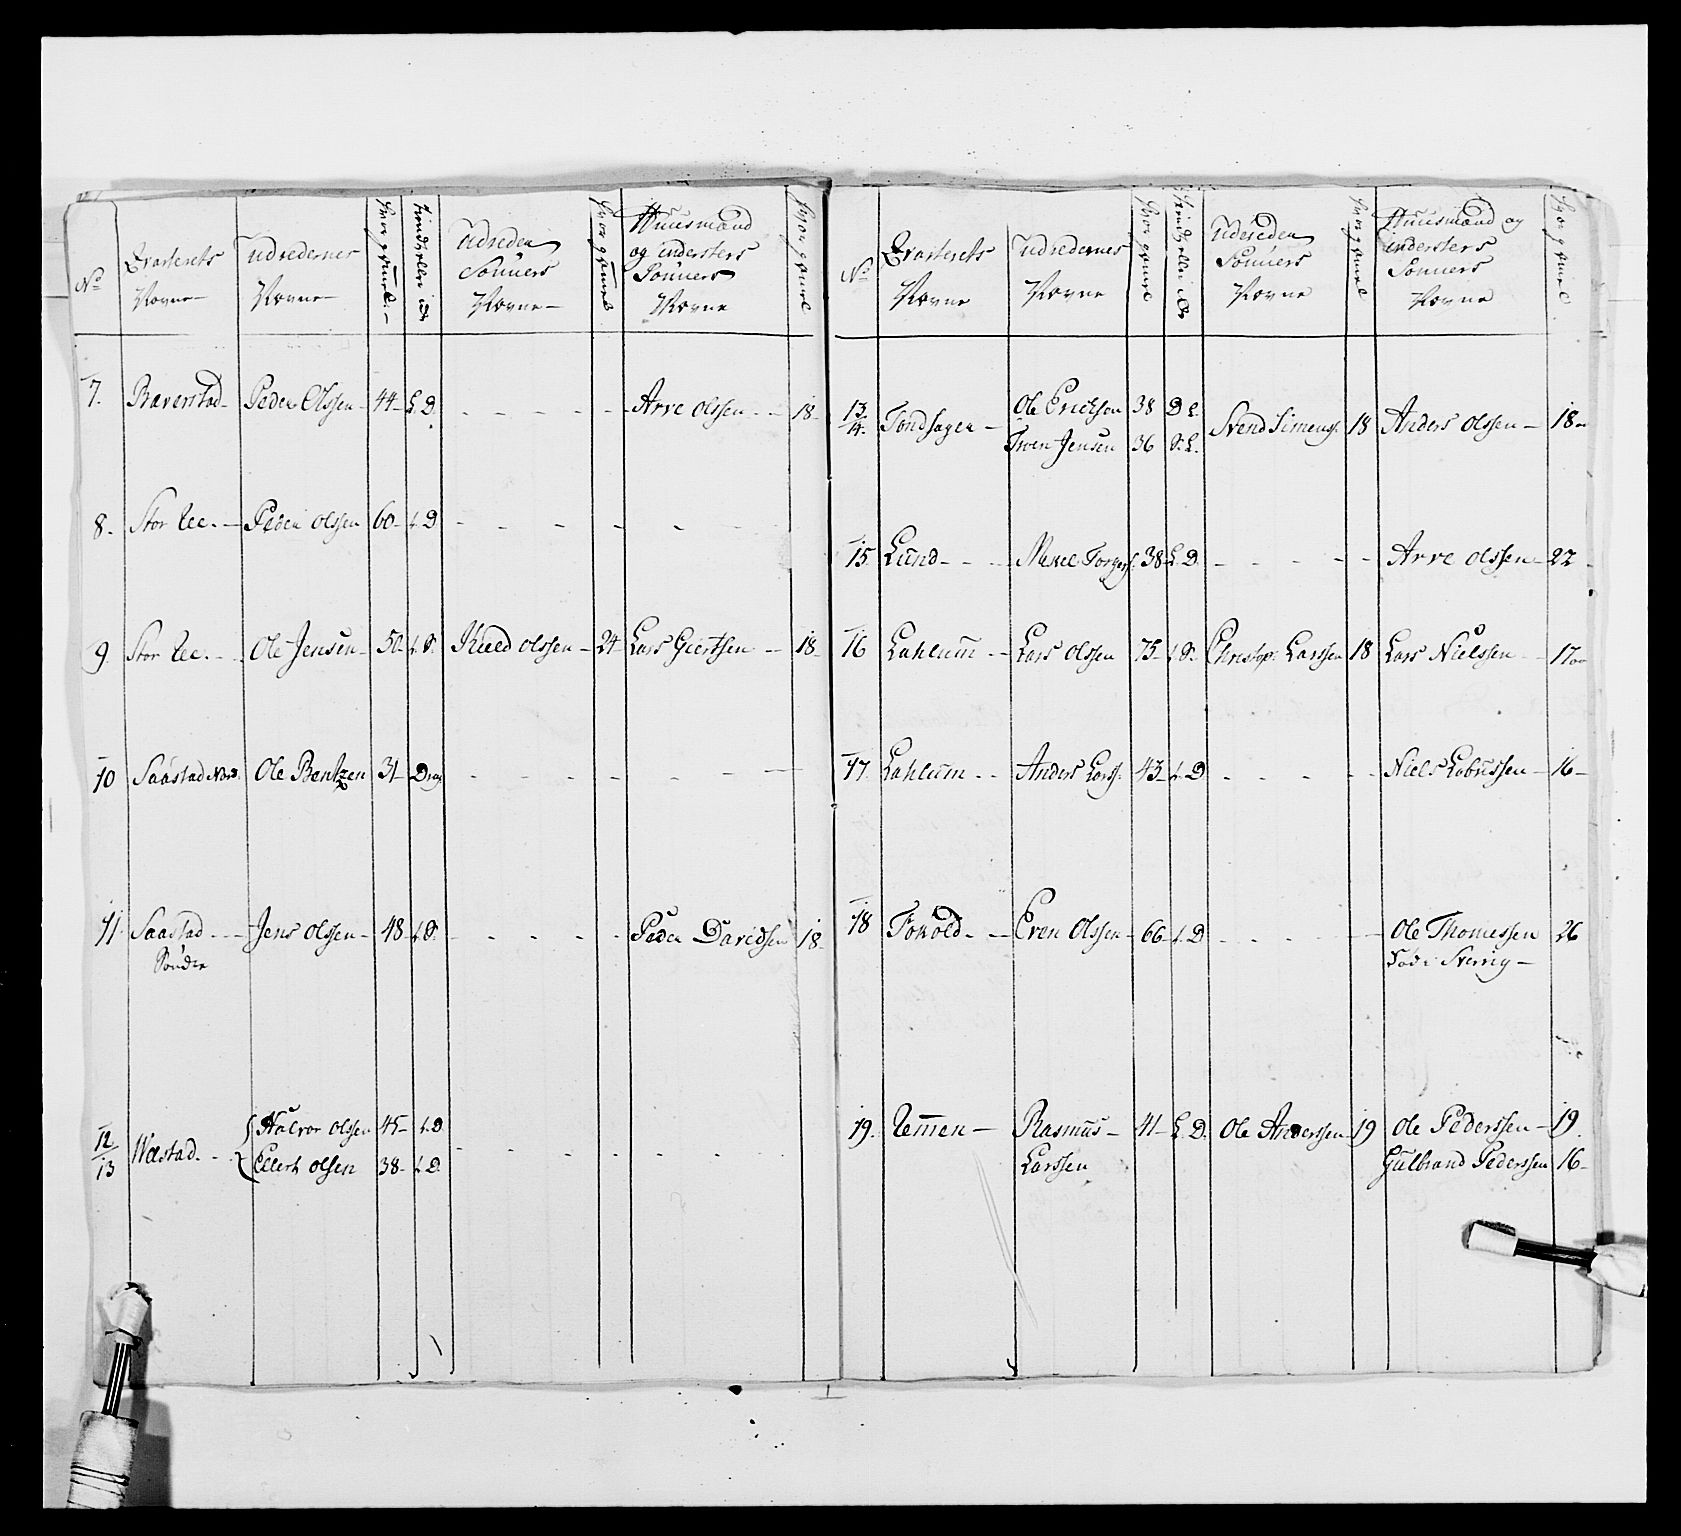 No
Qvarterets Navne
Udredernes Navne
Hvor gamel
Udreden Sønners Navne
Hvor gamel
Huusmænd og indersters Sønners Navne
Hvor gamel
7. Bæverstad Peder Olssen 44 L. D. - - - - Arve Olssen - - 18
8. Stor Lee. - Peder Olssen 60 L. D - - - - -
9. Stor Lee. - Ole Jensen 50 L. S. Knud Olssen 24 Lars Giertsen - 18
10 Saastad Nord. Ole Bentzen 31 Drag - - - - - - -
11. Saastad Søndre Jens Olssen 48 L. S. - - - - Peder Davidsen 18
12/13 Wæstad. - Halvor Olssen 45 L. D.
Ellert Olsen 38 L. D. - - - - - - -
No
Qvarterets Navne
Udredernes Navne
Hvor gamel
Udreden Sønners Navne
Hvor gamel
Huusmænd og indersters Sønners Navne
Hvor gamel
13/14. Ole Ericksen 38 D L.
Iwer Jensen 36 S. L. Svend Simens. 18 Anders Olssen - 18
15. Lund - - - Mikel Torgers. 38 L. D. - - - - Arve Olssen 22
16 Lahlum - - Lars Olssen 75 L. S. Christop. Larssen 18 Lars Nielssen - 17
17. Lahlum - - Anders Larss. 43 L. D - - - - Niels Labrissen - 16
18 Fokold - - Even Olssen 66 L. D - - - - Ole Thomessen 26
Død i Sverrig -
19. Remmen - Rasmus Larssen 41 L. D. Ole Anderssen 19 Ole Pederssen - 19.
Gulbrand Pederssen 16